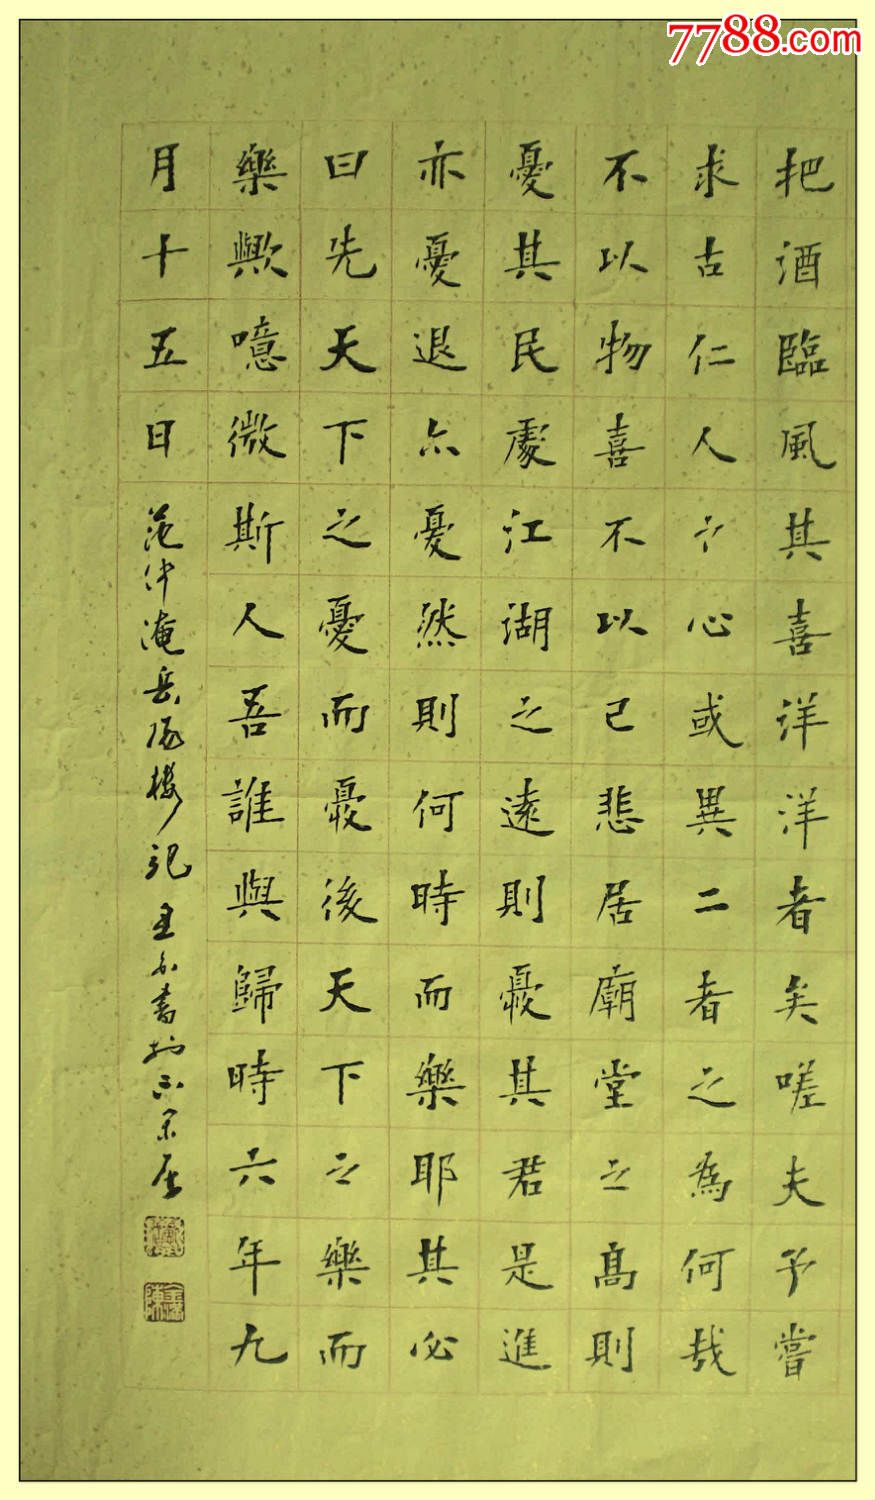 7788.com
把酒臨風其喜洋洋者矣嗟夫予嘗
求古仁人之心或異二者之為何哉
不以物喜不以己悲居廟堂之高則
憂其民處江湖之遠則憂其君是進
亦憂退亦憂然則何時而樂耶其必
曰先天下之憂而憂後天下之樂而
樂歟噫微斯人吾誰與歸時六年九
月十五日
范仲淹岳陽樓記